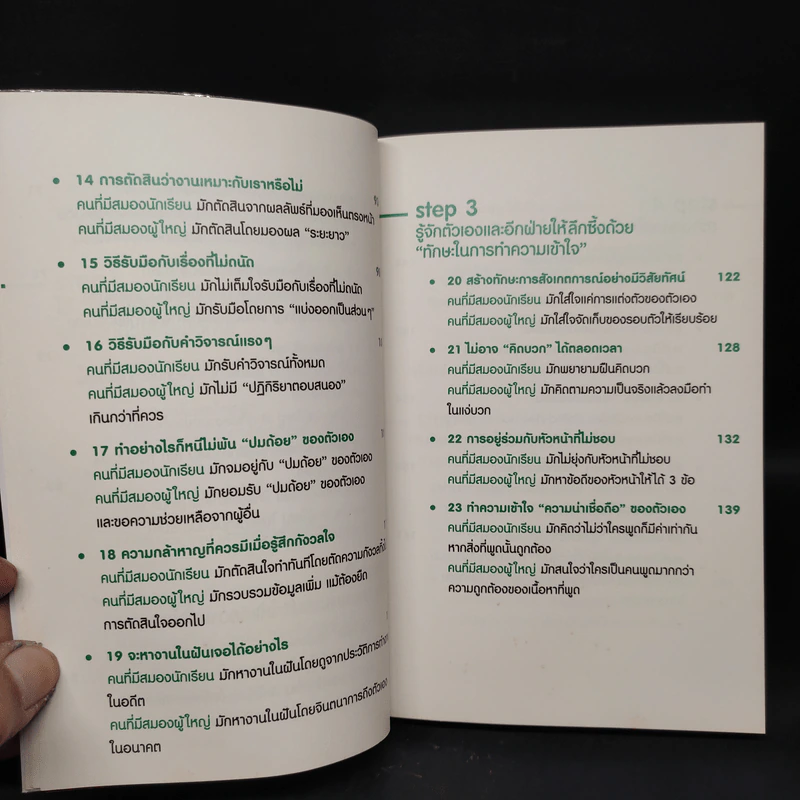 • 14 การตัดสินว่างานเหมาะกับเราหรือไม่
คนที่มีสมองนักเรียน มักตัดสินจากผลลัพธ์ที่มองเห็นตรงหน้า
คนที่มีสมองผู้ใหญ่ มักตัดสินโดยมองผล “ระยะยาว”
• 15 วิธีรับมือกับเรื่องที่ไม่ถนัด
คนที่มีสมองนักเรียน มักไม่เต็มใจรับมือกับเรื่องที่ไม่ถนัด
คนที่มีสมองผู้ใหญ่ มักรับมือโดยการ “แบ่งออกเป็นส่วนๆ”
• 16 วิธีรับมือกับคำวิจารณ์แรงๆ
คนที่มีสมองนักเรียน มักรับคำวิจารณ์ทั้งหมด
คนที่มีสมองผู้ใหญ่ มักไม่มี “ปฏิกิริยาตอบสนอง”
เกินกว่าที่ควร
• 17 ทำอย่างไรก็หนีไม่พ้น “ปมด้อย” ของตัวเอง
คนที่มีสมองนักเรียน มักจมอยู่กับ “ปมด้อย” ของตัวเอง
คนที่มีสมองผู้ใหญ่ มักยอมรับ “ปมด้อย” ของตัวเอง
และขอความช่วยเหลือจากผู้อื่น
• 18 ความกล้าหาญที่ควรมีเมื่อรู้สึกกังวลใจ
คนที่มีสมองนักเรียน มักตัดสินใจทำทันทีโดยตัดความกังวลทิ้ง
คนที่มีสมองผู้ใหญ่ มักรวบรวมข้อมูลเพิ่ม แม้ต้องยืด
การตัดสินใจออกไป
• 19 จะหางานในฝันเจอได้อย่างไร
คนที่มีสมองนักเรียน มักหางานในฝันโดยดูจากประวัติการทำงาน
ในอดีต
คนที่มีสมองผู้ใหญ่ มักหางานในฝันโดยจินตนาการถึงตัวเอง
ในอนาคต
step 3
รู้จักตัวเองและอีกฝ่ายให้ลึกซึ้งด้วย
“ทักษะในการทำความเข้าใจ”
• 20 สร้างทักษะการสังเกตการณ์อย่างมีวิสัยทัศน์ 122
คนที่มีสมองนักเรียน มักใส่ใจแค่การแต่งตัวของตัวเอง
คนที่มีสมองผู้ใหญ่ มักใส่ใจจัดเก็บของรอบตัวให้เรียบร้อย
• 21 ไม่อาจ “คิดบวก” ได้ตลอดเวลา 128
คนที่มีสมองนักเรียน มักพยายามฝืนคิดบวก
คนที่มีสมองผู้ใหญ่ มักคิดตามความเป็นจริงแล้วลงมือทำ
ในแง่บวก
• 22 การอยู่ร่วมกับหัวหน้าที่ไม่ชอบ 132
คนที่มีสมองนักเรียน มักไม่ยุ่งกับหัวหน้าที่ไม่ชอบ
คนที่มีสมองผู้ใหญ่ มักหาข้อดีของหัวหน้าให้ได้ 3 ข้อ
• 23 ทำความเข้าใจ “ความน่าเชื่อถือ” ของตัวเอง 139
คนที่มีสมองนักเรียน มักคิดว่าไม่ว่าใครพูดก็มีค่าเท่ากัน
หากสิ่งที่พูดนั้นถูกต้อง
คนที่มีสมองผู้ใหญ่ มักสนใจว่าใครเป็นคนพูดมากกว่า
ความถูกต้องของเนื้อหาที่พูด